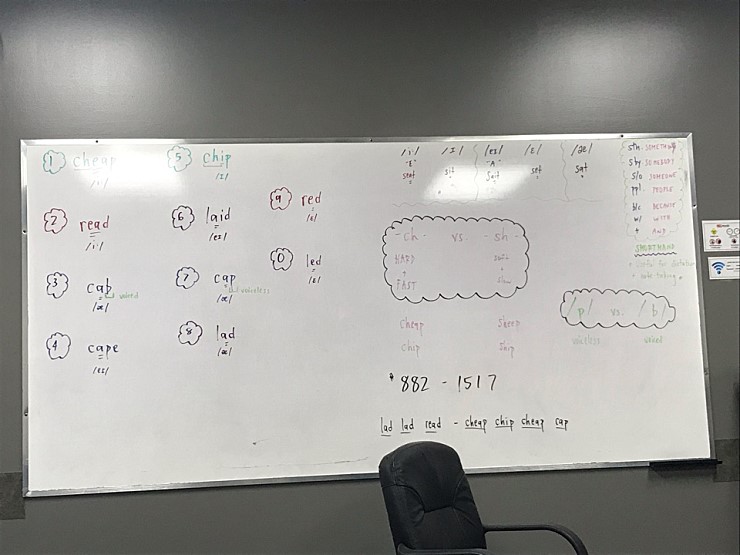 1 cheap
/i:/
2 read
/i:/
3 cab
voiced
/æ/
4 cape
/eɪ/
5 chip
/ɪ/
6 laid
/eɪ/
7 cap
voiceless
/æ/
8 lad
/æ/
9 red
/ɛ/
0 led
/ɛ/
/i:/ /ɪ/ /eɪ/ /ɛ/ /æ/
"E" "A"
seat sit set sat
- ch - vs. - sh -
HARD
+
FAST
cheap sheep
chip ship
* 882 - 1517
lad lad read - cheap chip cheap cap
sth - SOMETHING
sby SOMEBODY
s/o SOMEONE
ppl PEOPLE
b/c BECAUSE
w/ WITH
+ AND
SHORTHAND
* note taking
/p/ vs. /b/
voiceless voiced